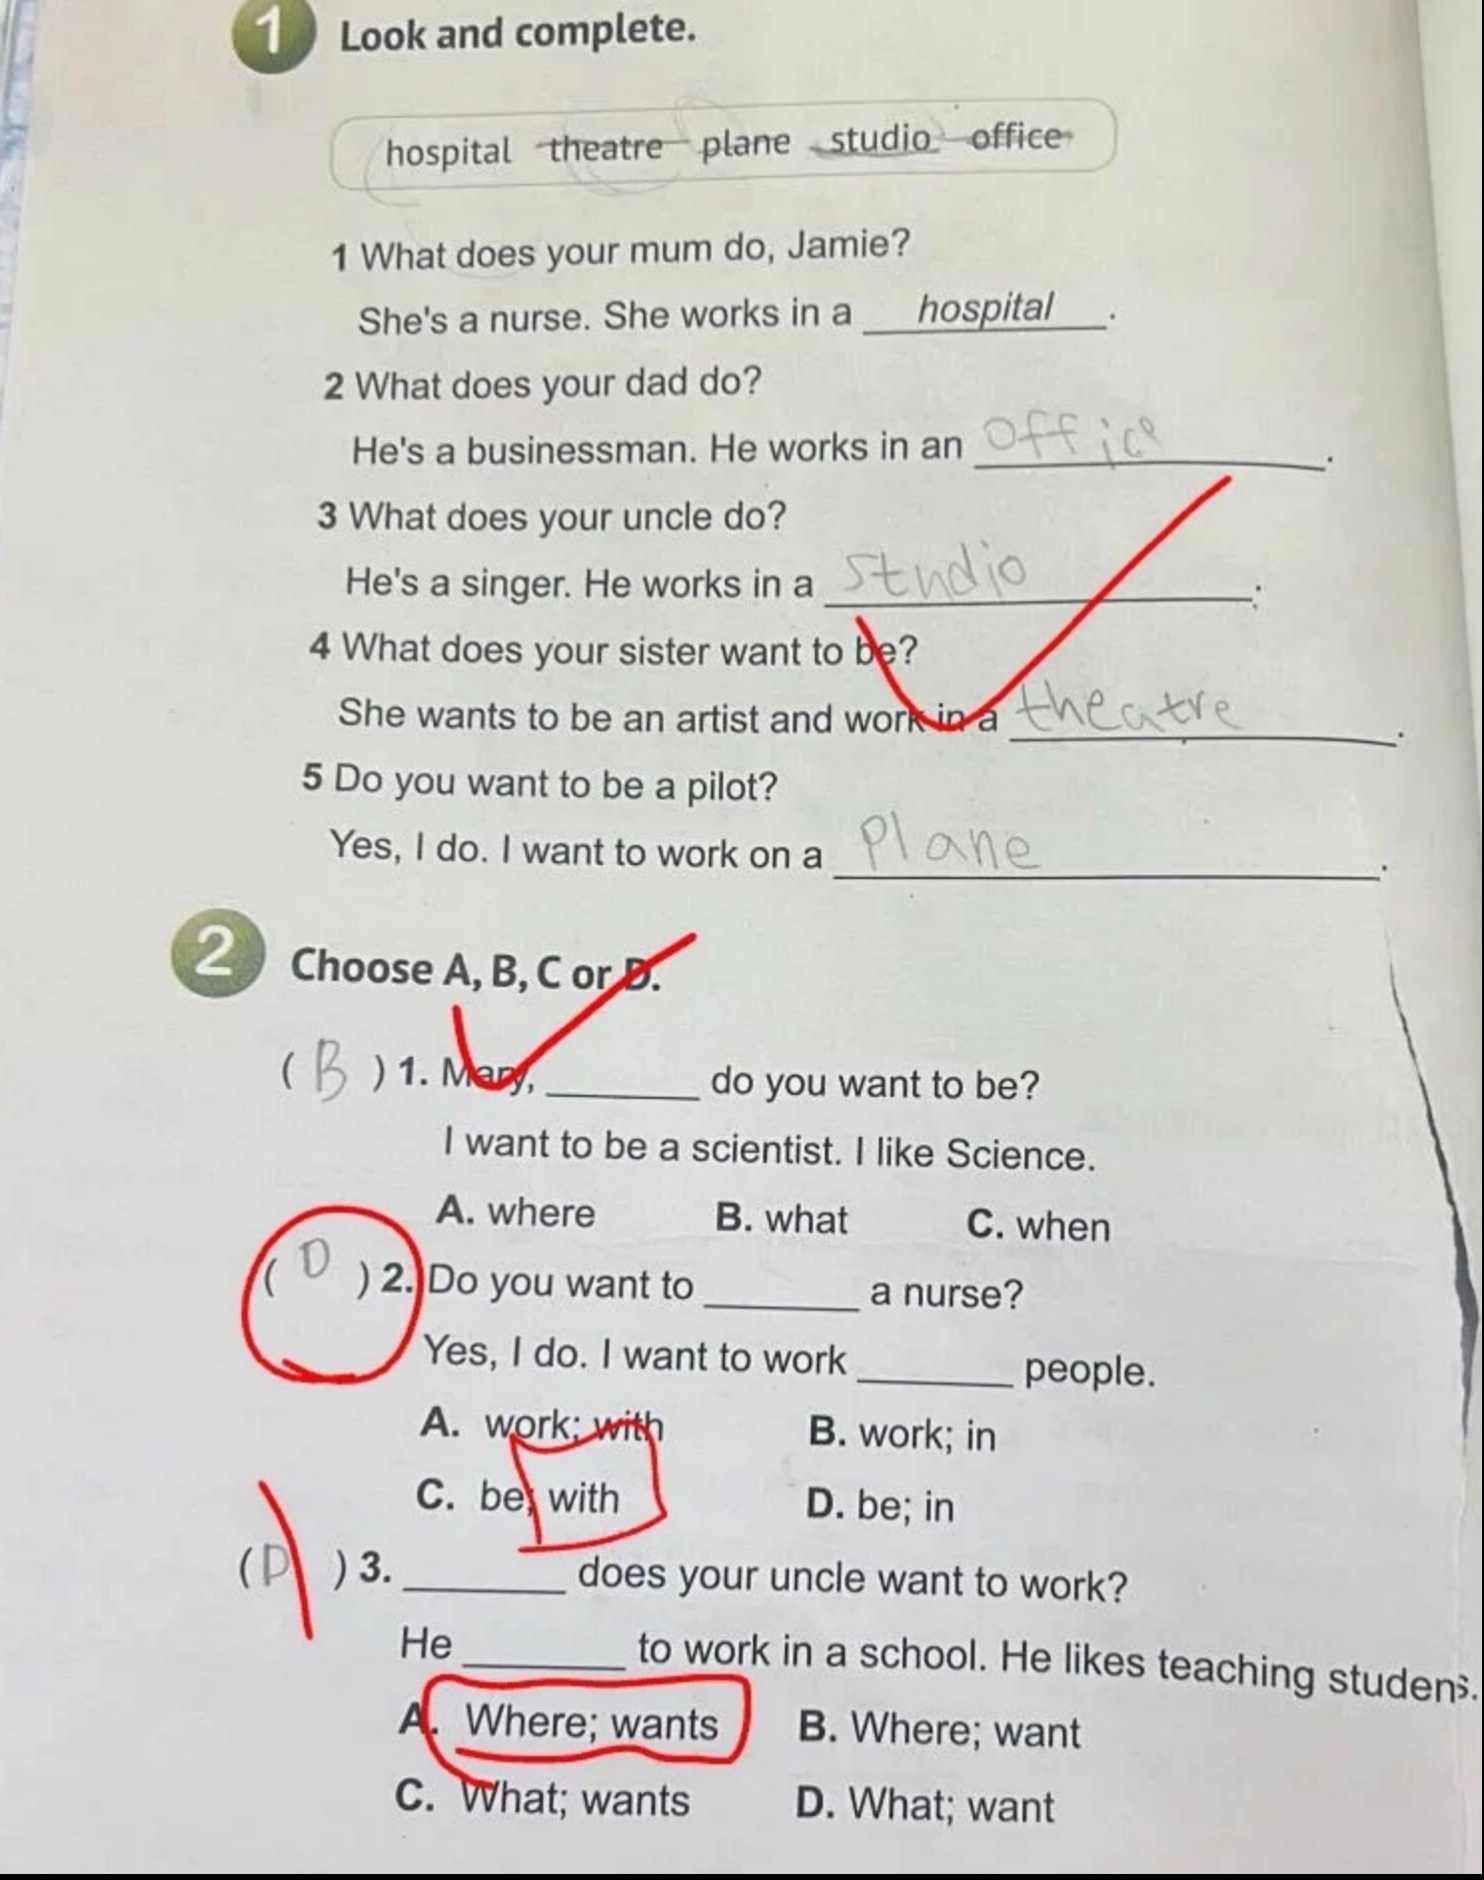 1 Look and complete.
hospital theatre plane studio office
1 What does your mum do, Jamie?
She's a nurse. She works in a hospital.
2 What does your dad do?
He's a businessman. He works in an office.
3 What does your uncle do?
He's a singer. He works in a studio.
4 What does your sister want to be?
She wants to be an artist and work in a theatre.
5 Do you want to be a pilot?
Yes, I do. I want to work on a Plane.
2 Choose A, B, C or D.
( B ) 1. Mary, ________ do you want to be?
I want to be a scientist. I like Science.
A. where B. what C. when
( D ) 2. Do you want to ________ a nurse?
Yes, I do. I want to work ________ people.
A. work; with B. work; in
C. be; with D. be; in
( D ) 3. ________ does your uncle want to work?
He ________ to work in a school. He likes teaching studens.
A. Where; wants B. Where; want
C. What; wants D. What; want